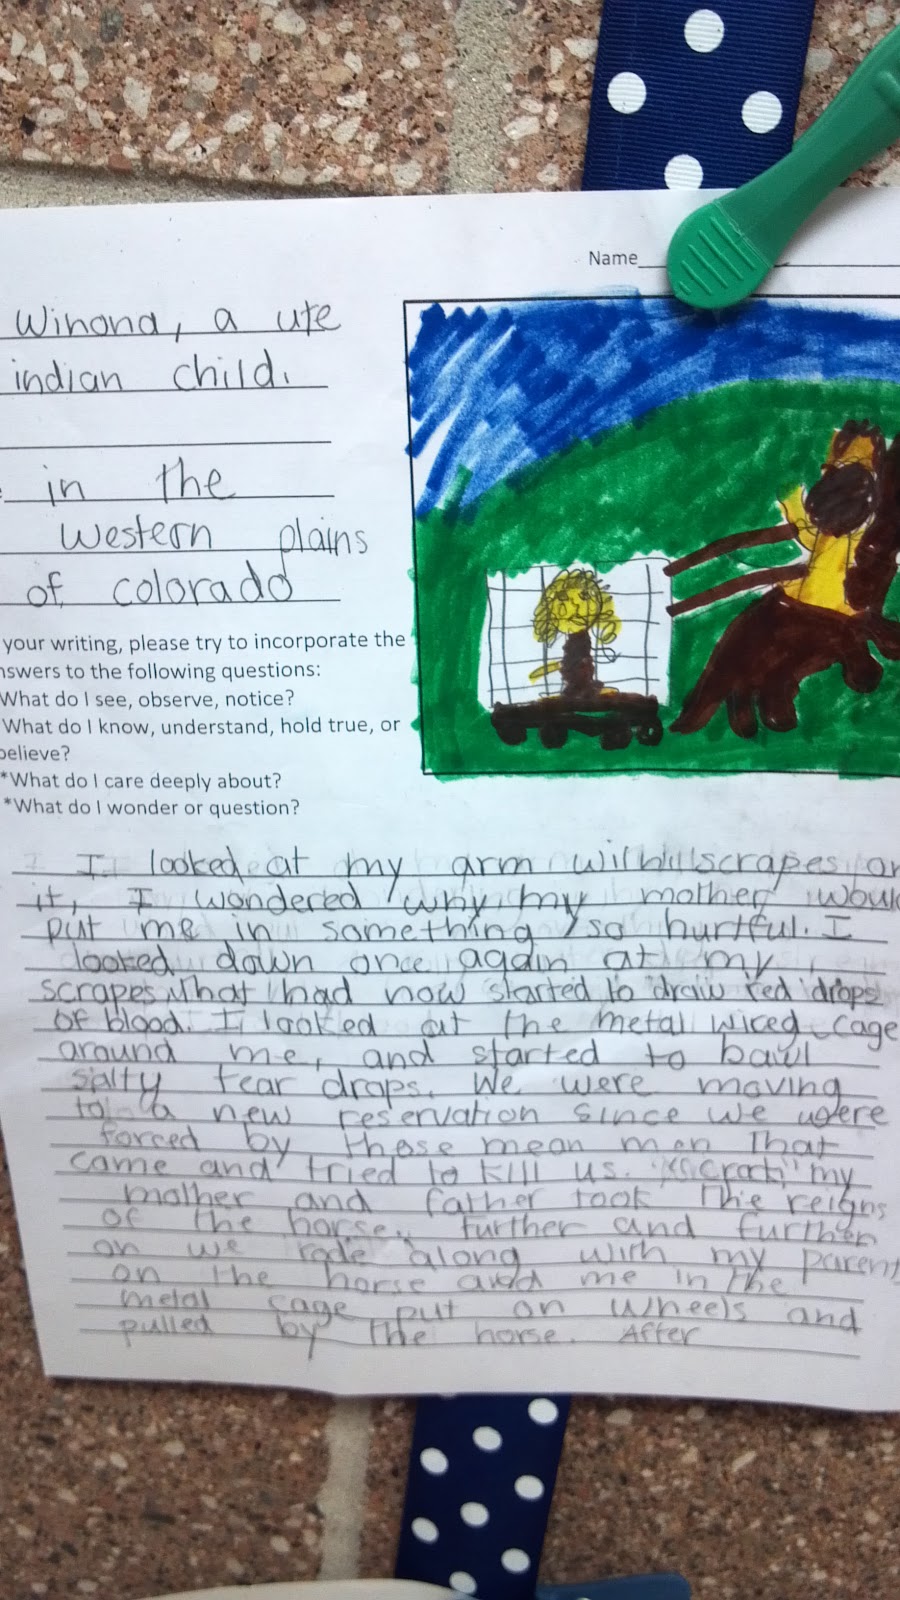 Name
Winona, a ute
indian child.
in the
western plains
of colorado
your writing, please try to incorporate the
nswers to the following questions:
What do I see, observe, notice?
What do I know, understand, hold true, or
believe?
*What do I care deeply about?
*What do I wonder or question?
I looked at my arm scrapes on
it, I wondered why my mother would
put me in something so hurtful. I
looked down once again at my
scrapes that had now started to draw red drops
of blood. I looked at the metal wiced cage
around me, and started to bawl
salty tear drops. We were moving
to a new reservation since we were
forced by those mean men that
came and tried to kill us. "Crack," my
mother and father took the reigns
of the horse. further and further
on we rode along with my parents
on the horse and me in the
metal cage put on wheels and
pulled by the horse. After